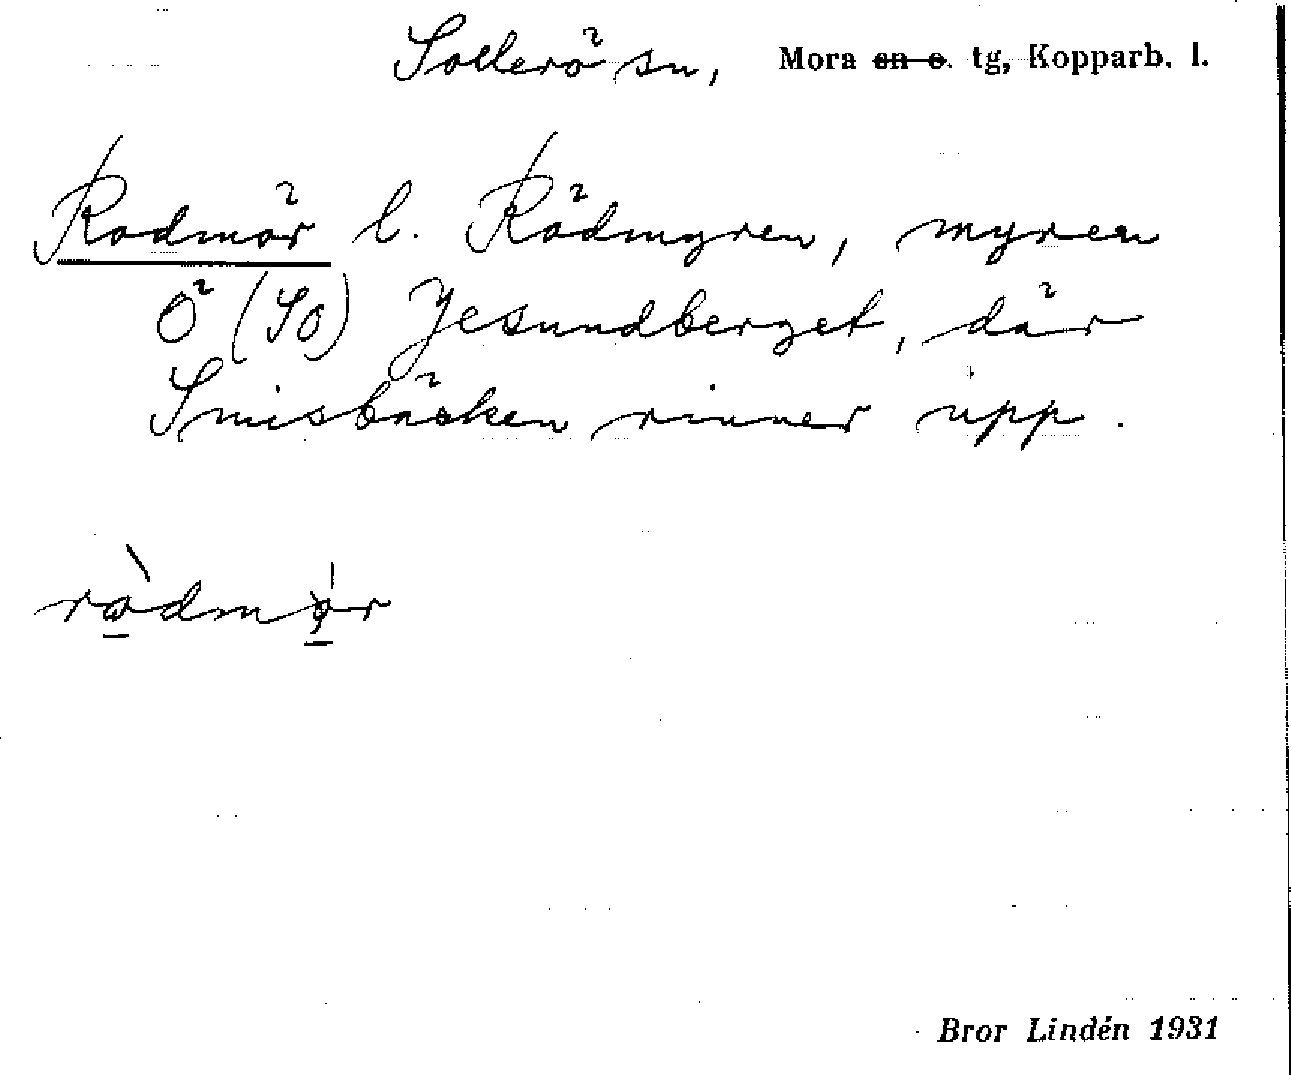 Sollerö sn, Mora sn o. tg, Kopparb. l.
Rodmör l. Rödmyren, myren
Ö (SO) Gesundberget, där
Smisbäcken rinner upp.
ròdmǫr
Bror Lindén 1931